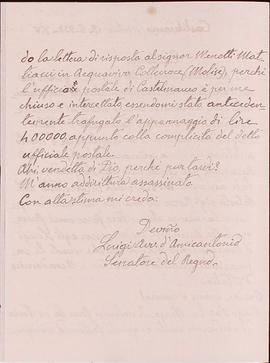 do la lettera di risposta al signor Menotti Mat-
tiacci in Acquaviva Collecroce (Molise), perchè
l'ufficio postale di Castelmauro è per me
chiuso e intercettato, essendomi stato anteceden-
temente trafugato l'appannaggio di lire
400000, appunto colla complicità del detto
ufficiale postale.
Ahi, vendetta di Dio, perchè pur
M'anno addirittura assassinato
Con alta stima mi creda:
Devmo
Luigi Avv. d'Amicantonio
Senatore del Regno